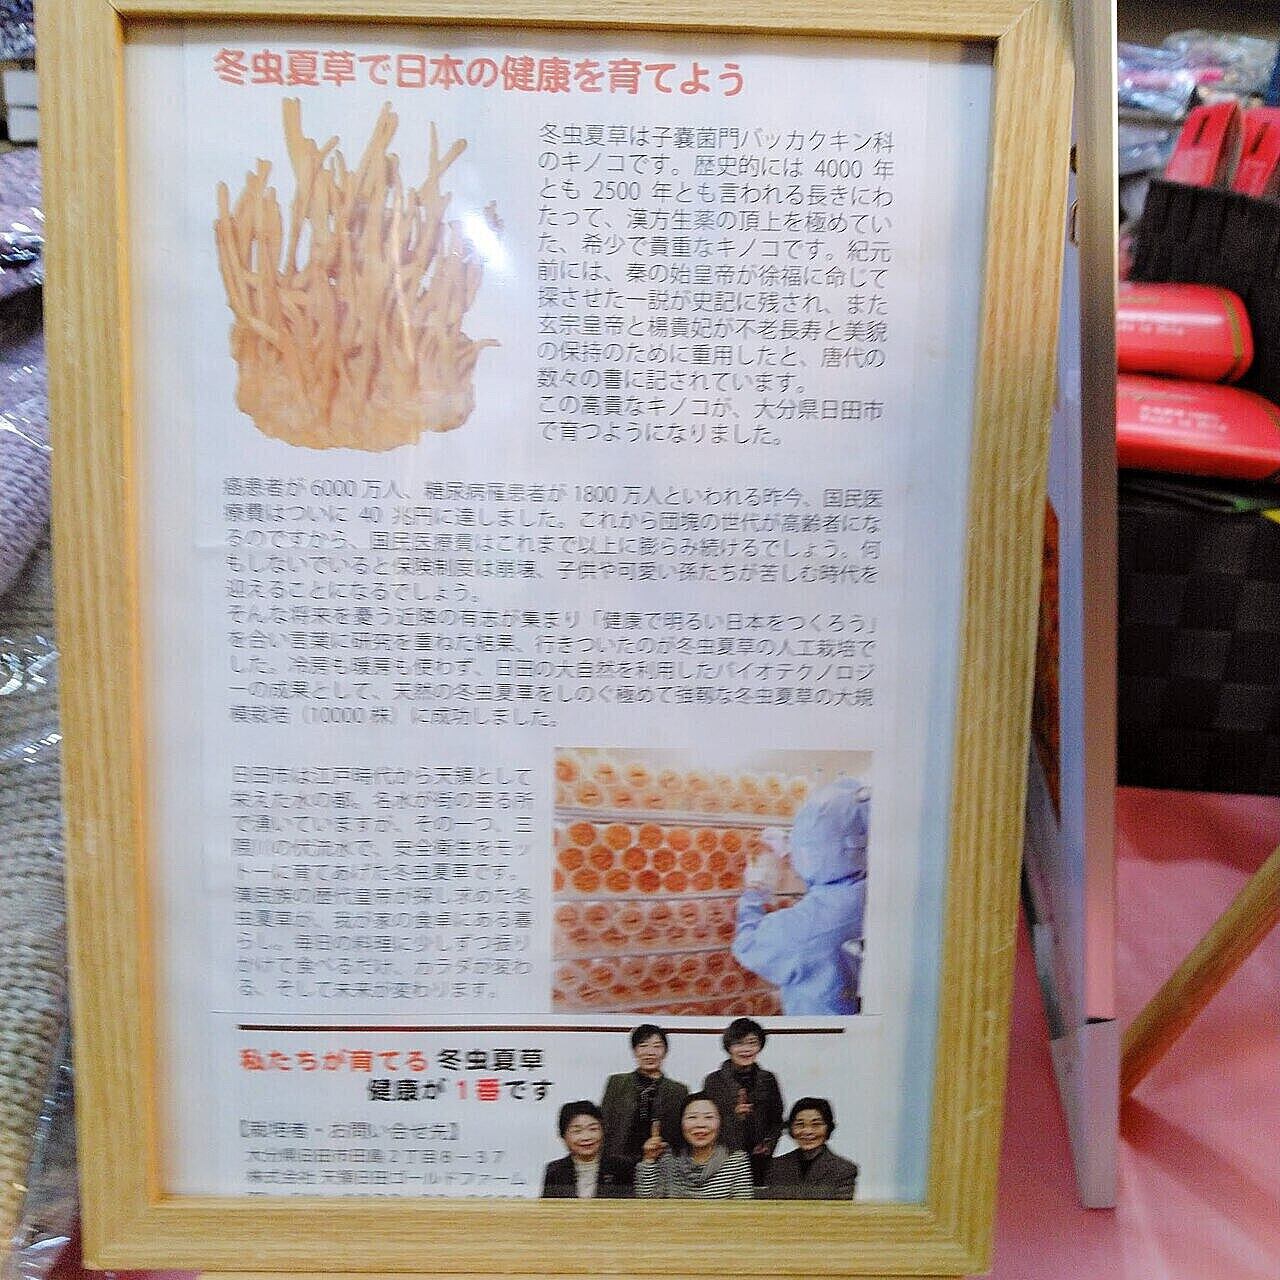 冬虫夏草で日本の健康を育てよう
冬虫夏草は子嚢菌門バッカクキン科
のキノコです。歴史的には 4000 年
とも 2500 年とも言われる長きにわ
たって、漢方生薬の頂上を極めてい
た、希少で貴重なキノコです。紀元
前には、秦の始皇帝が徐福に命じて
探させた一説が史記に残され、また
玄宗皇帝と楊貴妃が不老長寿と美貌
の保持のために重用したと、唐代の
数々の書に記されています。
この高貴なキノコが、大分県日田市
で育つようになりました。
癌患者が 6000 万人、糖尿病罹患者が 1800 万人といわれる昨今、国民医
療費はついに 40 兆円に達しました。これから団塊の世代が高齢者にな
るのですから、国民医療費はこれまで以上に膨らみ続けるでしょう。何
もしないでいると保険制度は崩壊、子供や可愛い孫たちが苦しむ時代を
迎えることになるでしょう。
そんな将来を憂う近隣の有志が集まり「健康で明るい日本をつくろう」
を合い言葉に研究を重ねた結果、行きついたのが冬虫夏草の人工栽培で
した。冷房も暖房も使わず、日田の大自然を利用したバイオテクノロジ
ーの成果として、天然の冬虫夏草をしのぐ極めて強靱な冬虫夏草の大規
模栽培（10000 株）に成功しました。
日田市は江戸時代から天領として
栄えた水の都。名水が街の至る所
で湧いていますが、その一つ、三
隈川の伏流水で、安全衛生をモッ
トーに育てあげた冬虫夏草です。
漢民族の歴代皇帝が探し求めた冬
虫夏草が、我が家の食卓にある暮
らし。毎日の料理に少しずつ振り
かけて食べるだけ、カラダが変わ
る、そして未来が変わります。
私たちが育てる 冬虫夏草
健康が 1 番です
【栽培者・お問い合せ先】
大分県日田市田島２丁目８－３７
株式会社 天領日田ゴールドファーム